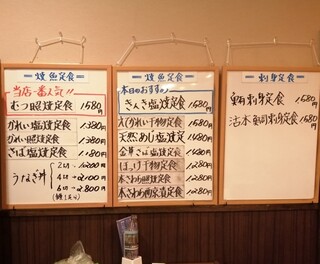 焼魚定食
当店一番人気!!
むつ照焼定食 1580円
かれい塩焼定食 1380円
かれい照焼定食 1380円
さば塩焼定食 1180円
うなぎ丼
2切→1200円
4切→2100円
6切→2,800円
焼魚定食
本日のおすすめ
きんき塩焼定食 1,580円
天然あじ塩焼定食
金華さば塩焼定食
ほっけ干物定食 1280円
本さわら照焼定食 1,280円
本さわら西京焼定食 1,280円
刺身定食
刺身定食 1580円
活〆 刺身定食 1,580円